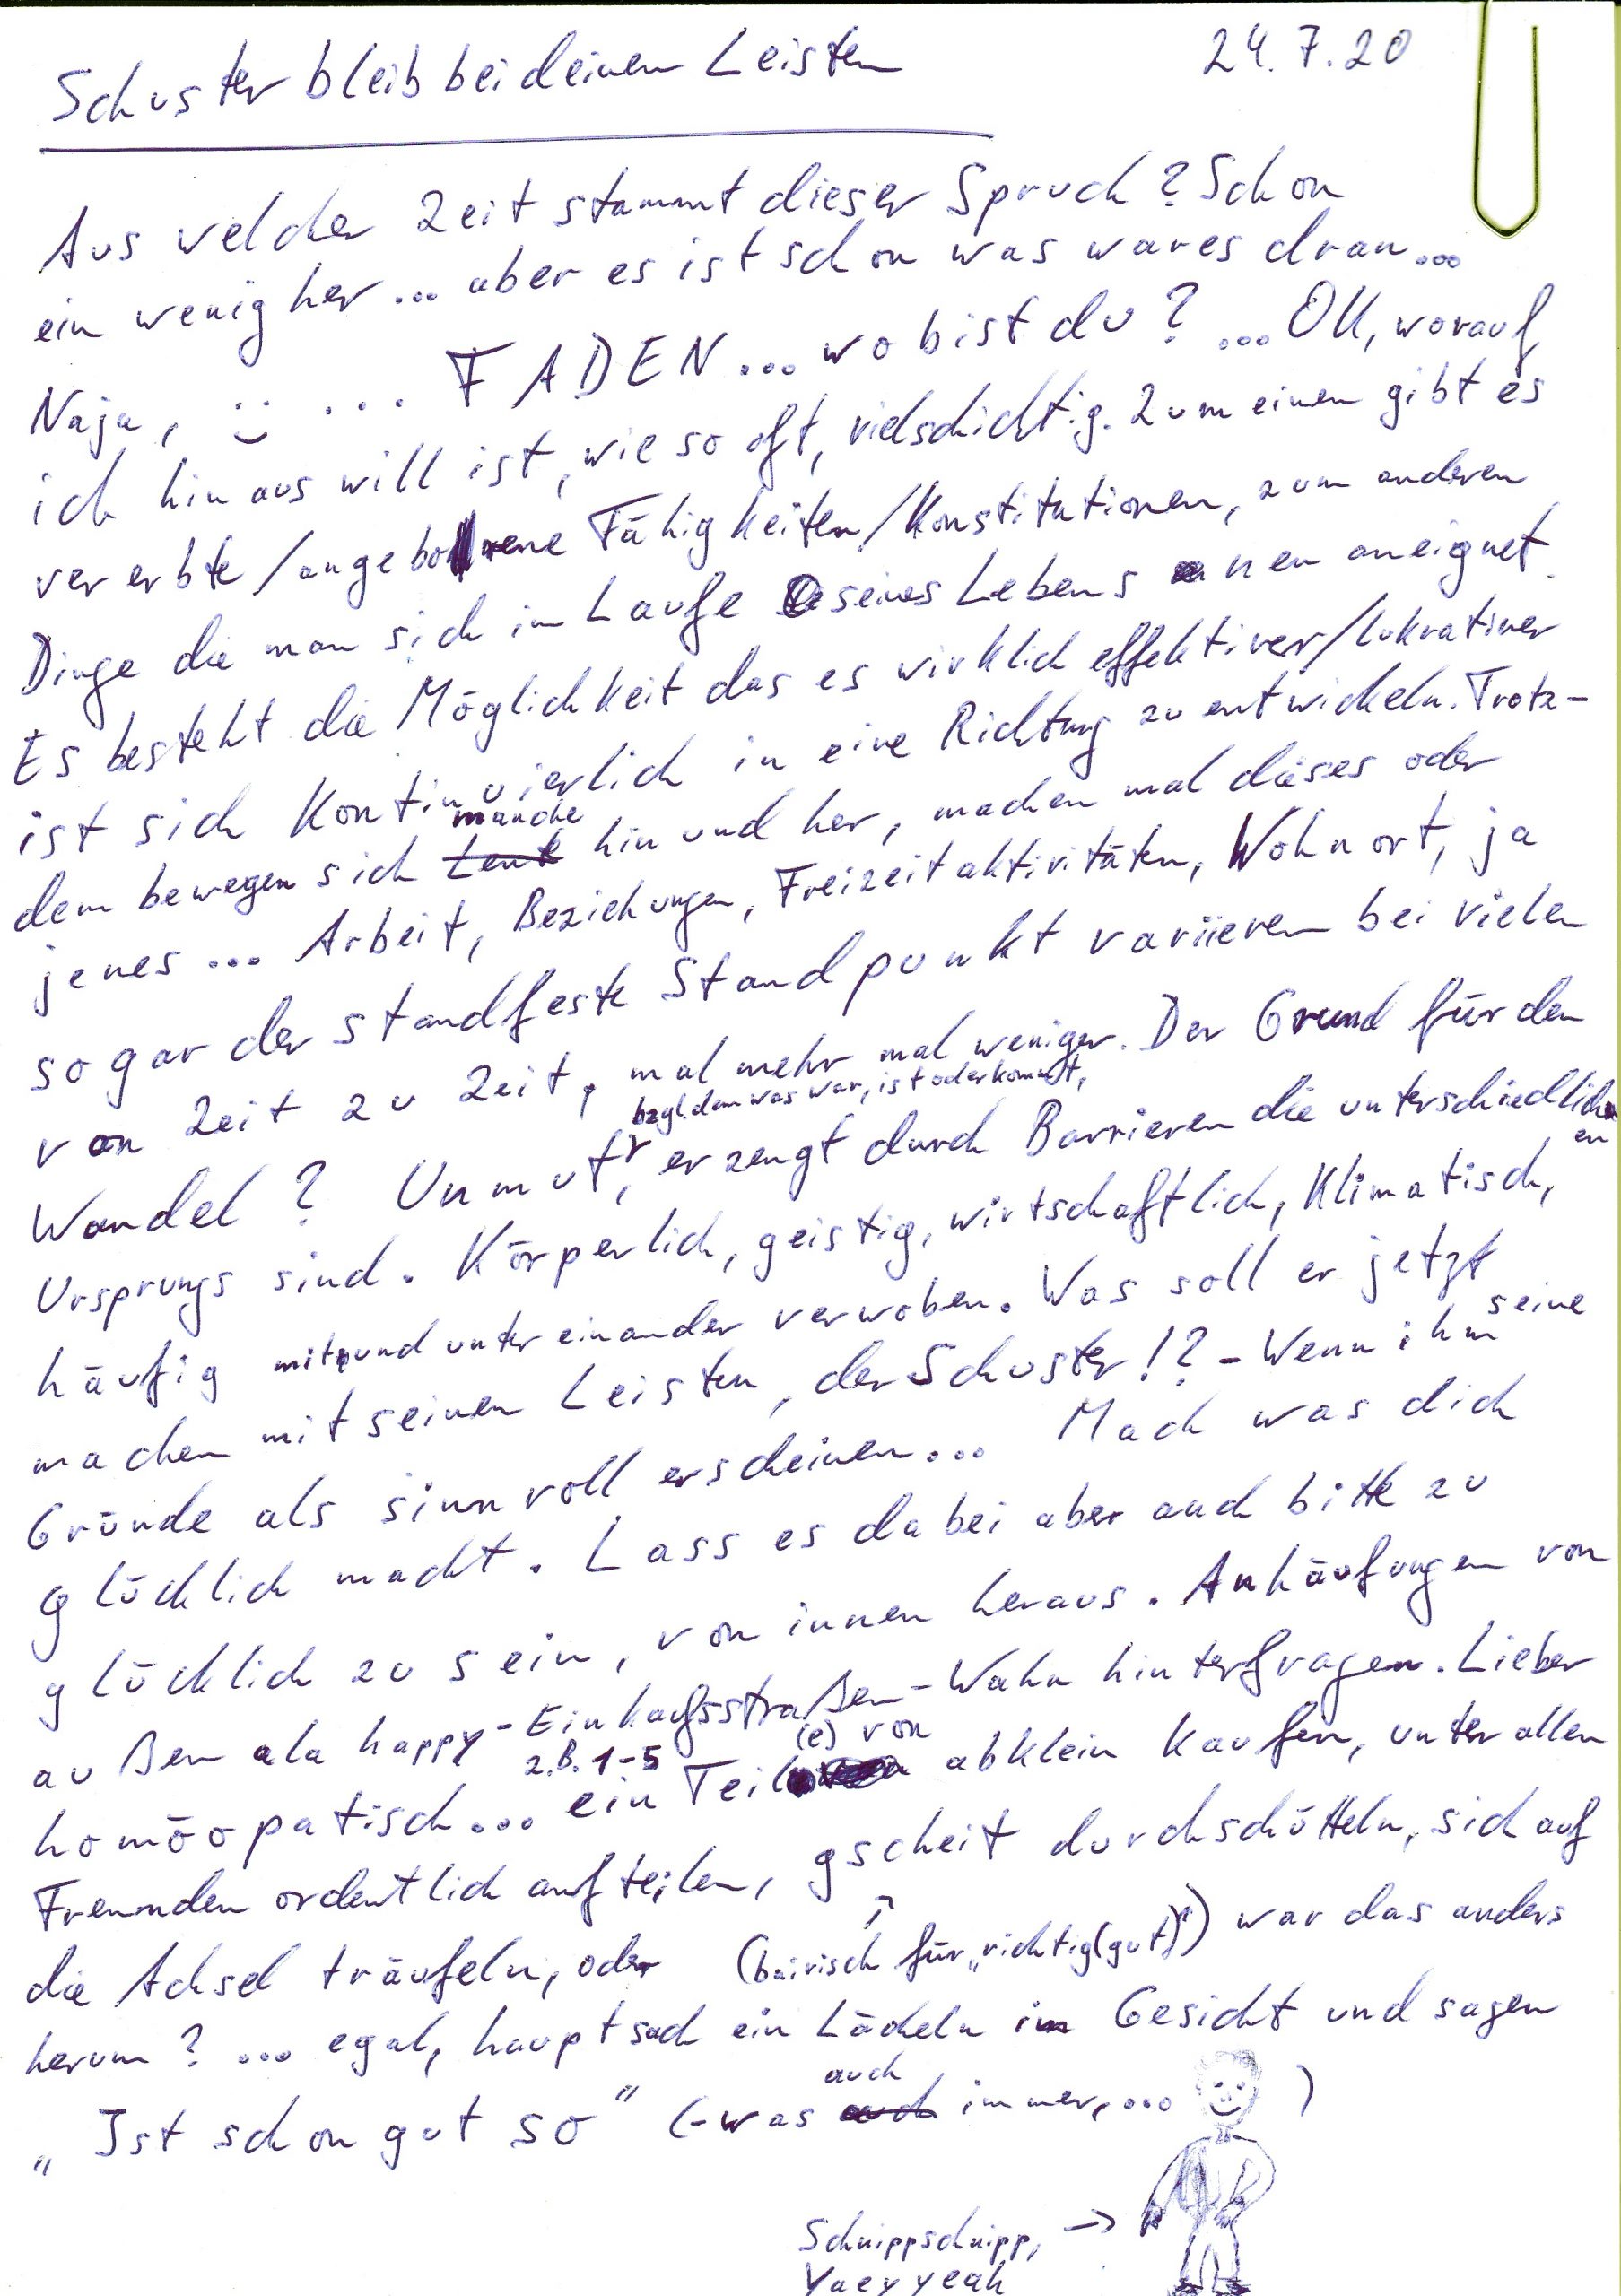 Schuster bleib bei deinen Leisten 24.7.20
Aus welcher Zeit stammt dieser Spruch? Schon
ein wenig her... aber es ist schon was wares dran...
Naja, :) ... FADEN... wo bist du? ... OK, worauf
ich hinaus will ist, wie so oft, vielschichtig. Zum einen gibt es
vererbte/angeborene Fähigkeiten/Konstitutionen, zum anderen
Dinge die man sich im Laufe seines Lebens neu aneignet.
Es besteht die Möglichkeit das es wirklich effektiver/lukrativer
ist sich kontinuierlich in eine Richtung zu entwickeln. Trotz-
manche
dem bewegen sich Leute hin und her, machen mal dieses oder
jenes... Arbeit, Beziehungen, Freizeitaktivitäten, Wohnort, ja
sogar der standfeste Standpunkt variieren bei vielen
von Zeit zu Zeit, mal mehr mal weniger. Der Grund für den
bzgl. dem was war, ist oder kommt,
Wandel? Unmut, erzeugt durch Barrieren die unterschiedlichen
Ursprungs sind. Körperlich, geistig, wirtschaftlich, klimatisch,
häufig mit und unter einander verwoben. Was soll er jetzt
machen mit seinen Leisten, der Schuster!? - Wenn ihm seine
Gründe als sinnvoll erscheinen... Mach was dich
glücklich macht. Lass es dabei aber auch bitte zu
glücklich zu sein, von innen heraus. Anhäufungen von
außen ala happy-Einkaufsstraßen-Wahn hinterfragen. Lieber
z.B. 1-5 (e) von
homöopatisch... ein Teil abklein kaufen, unter allen
Freunden ordentlich aufteilen, gscheit durchschütteln, sich auf
die Achsel träufeln, oder (bairisch für „richtig(gut)“) war das anders
herum? ... egal, hauptsach ein Lächeln im Gesicht und sagen
auch
„Ist schon gut so“ (-was auch immer,... )
Schnippschnipp, →
Yaeyyeah